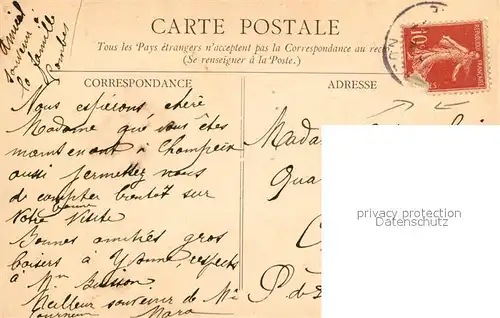 CARTE POSTALE
Tous les Pays étrangers n'acceptent pas la Correspondance au rec
(Se renseigner à la Poste.)
CORRESPONDANCE
Nous espérons chère
Madame que vous êtes
maintenant à Champeix
aussi permettez nous
de compter bientôt sur
bonne
votre visite
Bonnes amitiés gros
baisers à Yvonne, respects
à Mr
Meilleur souvenir de Me
Amical
souvenir
la famille
ADRESSE
Mada
Qua
P-de-
10c
privacy protection
Datenschutz